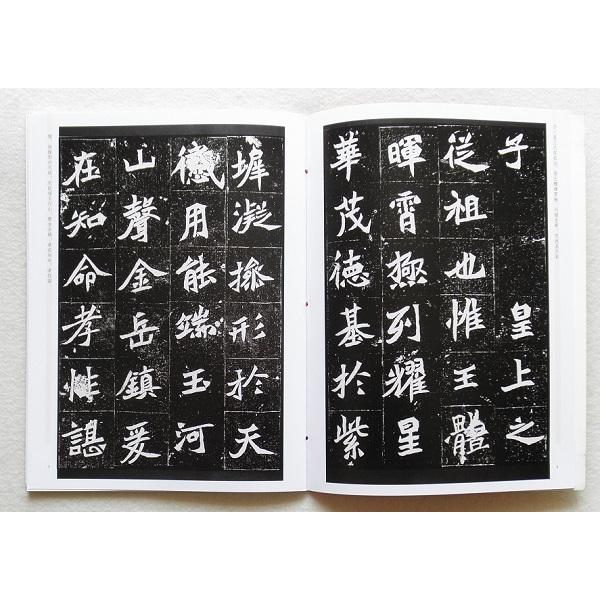 子 皇上之
從祖也惟王體
暉霄極列耀星
華茂德基於紫
墀凝操形於天
感用能端玉河
山聲金岳鎮爰
在知命孝性諶